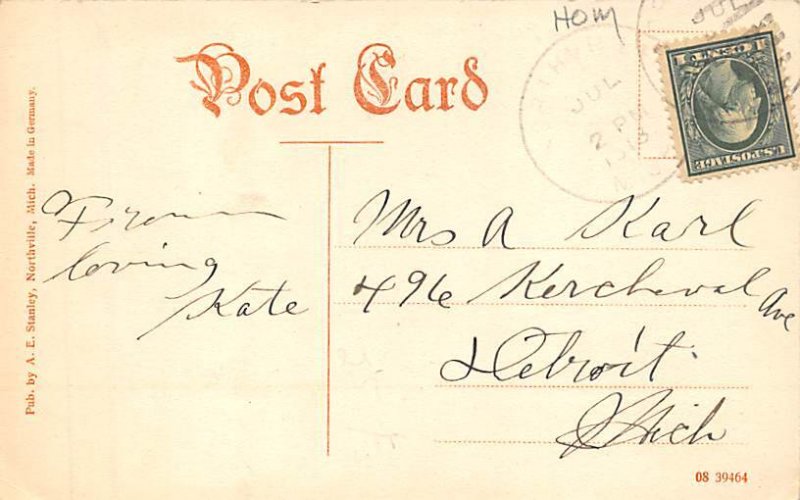 Hom
Post Card
JUL
JUL
2 PM
1913
1 CENT 1
U.S. POSTAGE
From
loving
Kate
Mrs A Karl
496 Kercheval Ave
Detroit
Mich
Pub. by A. E. Stanley, Northville, Mich. Made in Germany.
08 39464